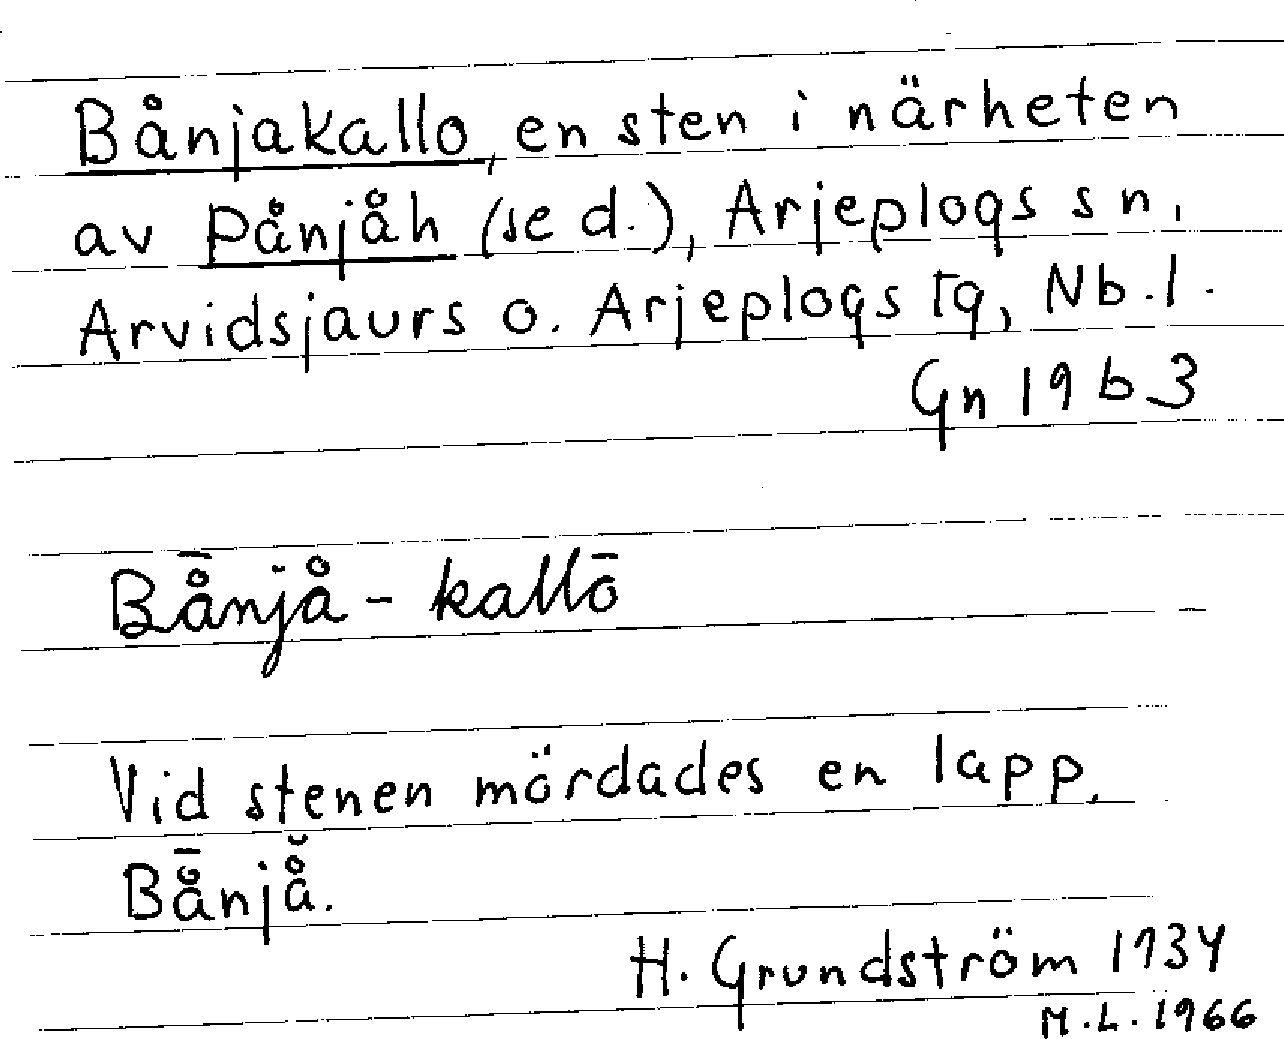 Bånjakallo, en sten i närheten
av Pånjåh (se d.), Arjeplogs sn,
Arvidsjaurs o. Arjeplogs tg, Nb.l.
Gn 19 b 3
Bå̄njå - kallō
Vid stenen mördades en lapp,
Bå̄njå̆.
H. Grundström 1934
M.L. 1966